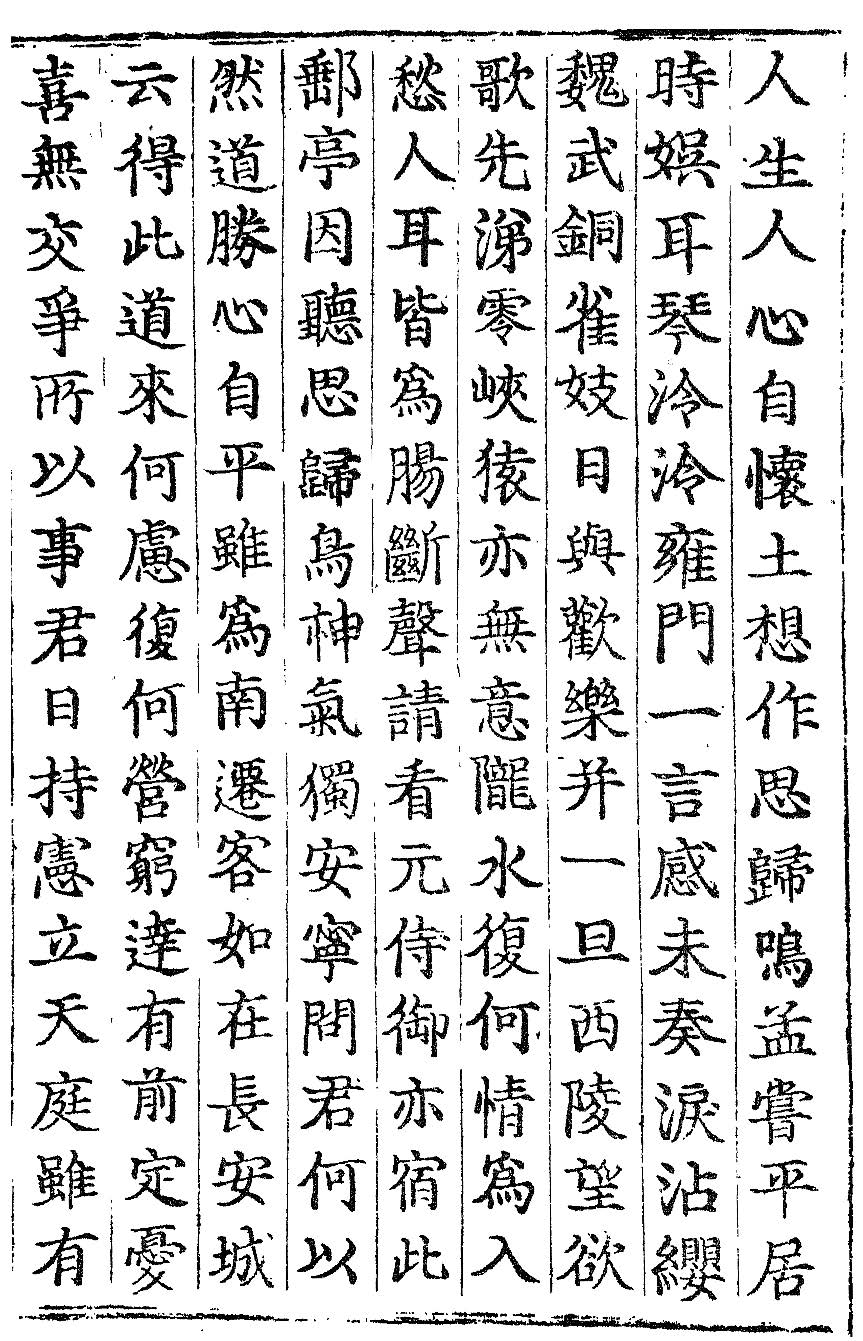 人生人心自懷土想作思歸鳴孟嘗平居
時娯耳琴泠泠雍門一言感未奏淚沾纓
魏武銅雀妓日與歡樂并一旦西陵望欲
歌先涕零峽猿亦無意隴水復何情爲入
愁人耳皆爲腸斷聲請看元侍御亦宿此
郵亭因聽思歸鳥神氣獨安寧問君何以
然道勝心自平雖爲南遷客如在長安城
云得此道來何慮復何營窮達有前定憂
喜無交爭所以事君日持憲立天庭雖有